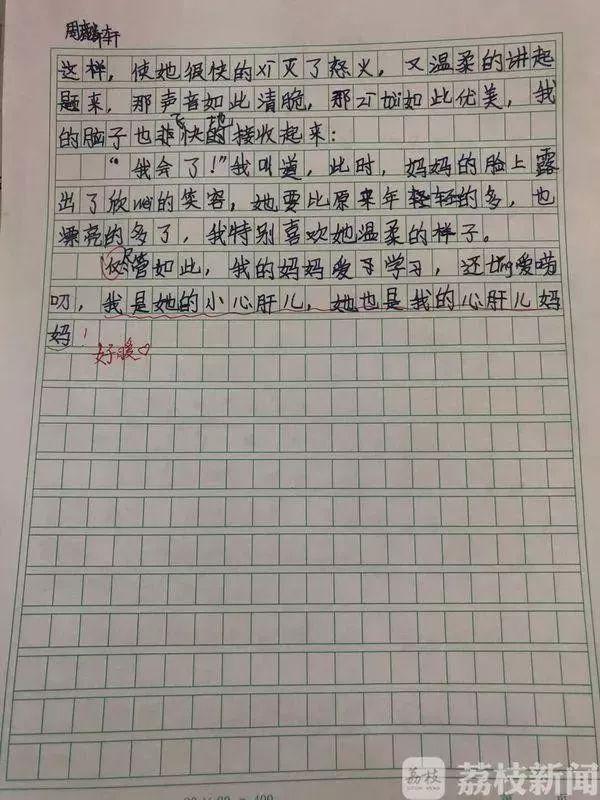 周麟轩
这样，使她很快的xī灭了怒火，又温柔的讲起
题来，那声音如此清脆，那zī tài如此优美，我
飞 地
的脑子也非快的接收起来：
“我会了！”我叫道，此时，妈妈的脸上露
出了欣wèi的笑容，她要比原来年轻的多，也
漂亮的多了，我特别喜欢她温柔的样子。
尽
管如此，我的妈妈爱学习，还tǐng爱唠
叨，我是她的小心肝儿，她也是我的心肝儿妈
妈！
好暖♡
荔枝
荔枝新闻